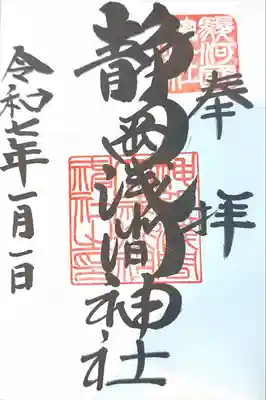 駿河國
奉拝
静岡浅間神社
令和七年一月一日